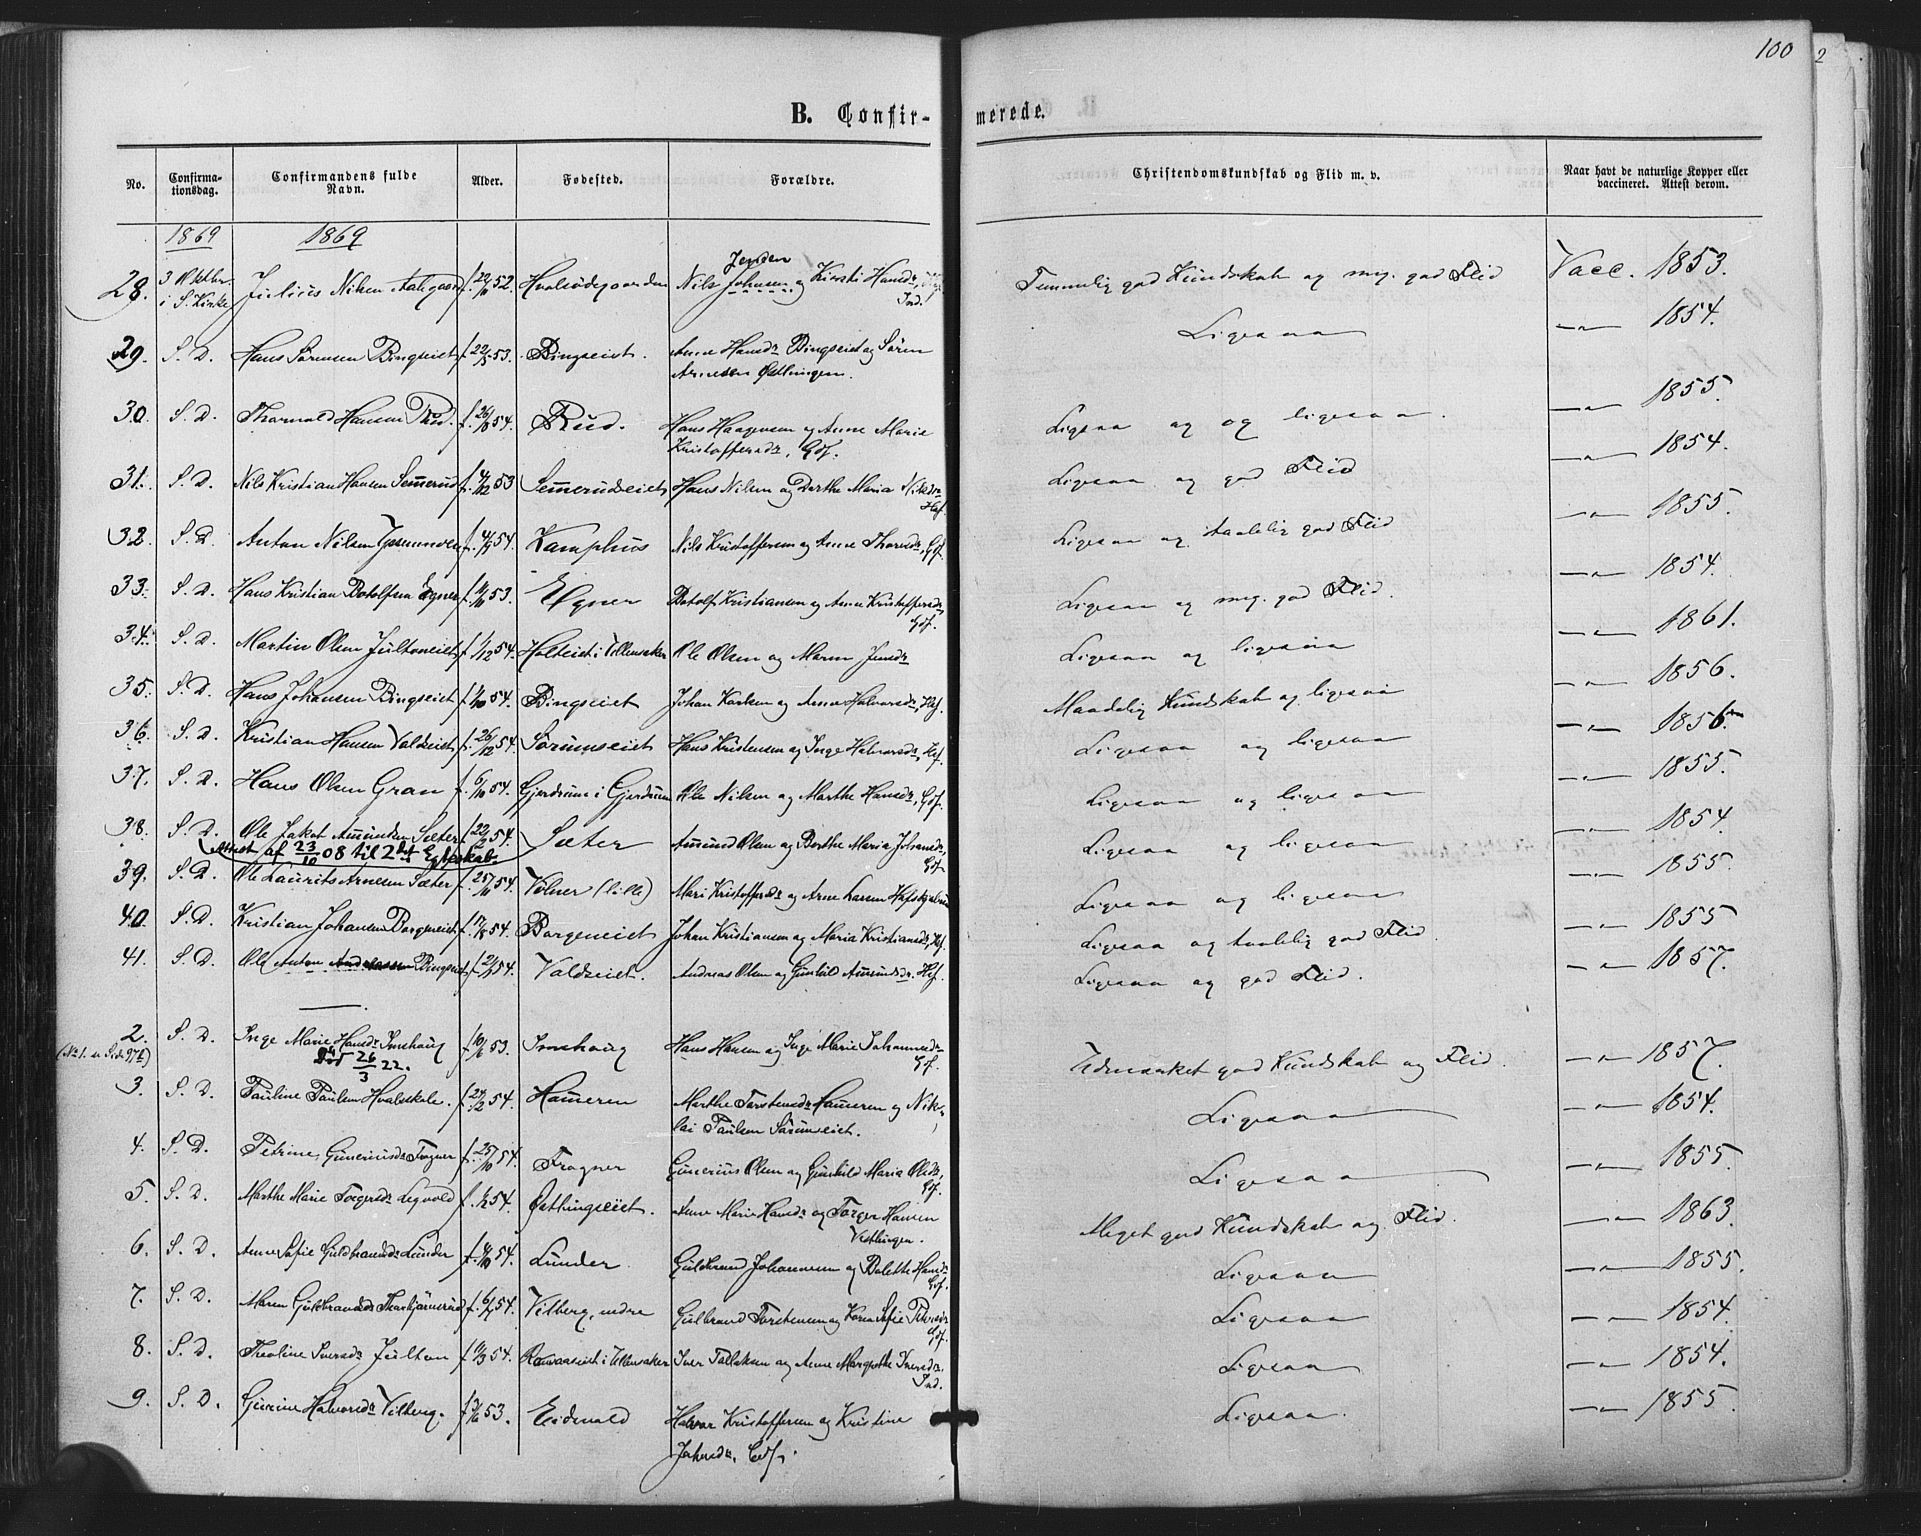 100
2
B. Confir-
merede.
No.
Confirma-
tionsdag.
Confirmandens fulde
Navn.
Alder.
Fødested.
Forældre.
Christendomskundskab og Flid m. v.
Naar havt de naturlige Kopper eller
vaccineret. Attest derom.
1869 1869
28. 3 Oktbr. i S. Kirke Julius Nilsen f. 52. Nils Johnsen og Kirsti Hansdr, Ind. Temmelig god Kundskab og meg. god Flid Vacc. 1853.
29. S. D. Hans Sørensen Bingseiet f. 22/5 53. Bingseiet. Anne Hansdr Bingseiet og Søren
Arnesen Østhingen. Ligesaa —"— 1854.
30. S. D. Thorvald Hansen Rud. f. 54. Rud. Hans Haagensen og Anne Maria
Kristoffersdr, Gdf. Ligesaa og og ligesaa. —"— 1855.
31. S. D. Nils Kristian Hansen Semerud f. 4/12 53 Semerudseiet Hans Nilsen og Dorthe Maria Nilsdr Hsf. Ligesaa og god Flid —"— 1854.
32. S. D. Anton Nilsen f. 54. Kamphus Nils Kristoffersen og Anne Thorsdr, Gdf. Ligesaa og taalelig god Flid —"— 1855.
33. S. D. Hans Kristian Botolfsen Egner f. 53. Egner Botolf Kristiansen og Anne Kristoffersdr, Gdf. Ligesaa og meg. god Flid. —"— 1854.
34. S. D. Martin Olsen Jultoneiet f. 1/12 54. Holteiet i Ullensaker Ole Olsen og Maren Jensdr Ligesaa og ligesaa —"— 1861.
35. S. D. Hans Johansen Bingseiet f. 54. Bingseiet Johan Karlsen og Anne Halvorsdr, Hsf. Maadelig Kundskab og ligesaa —"— 1856.
36. S. D. Kristian Hansen Valdseiet f. 26/12 54. Sørumseiet Hans Kristensen og Inge Halvorsdr, Hsf. Ligesaa og ligesaa —"— 1856.
37. S. D. Hans Olsen Gran f. 6/10 54. Gjerdrum i Gjerdrum Ole Nilsen og Marthe Hansdr, Gdf. Ligesaa og ligesaa —"— 1855.
38. S. D. Ole Jakob Amundsen Sæter f. 54. Sæter Amund Olsen og Berthe Maria Johansdr, Gdf. Ligesaa og ligesaa —"— 1854.
Attest af 23/10 08 til 2det Egteskab.
39. S. D. Ole Laurits Arnesen Sæter f. 54. Volner (lille) Mari Kristoffersdr og Arne Larsen Ligesaa og ligesaa —"— 1855.
40. S. D. Kristian Johansen Borgeneiet f. 17/8 54. Borgeneiet Johan Kristiansen og Maria Kristiansdr, Hsf. Ligesaa og taalelig god Flid. —"— 1855
41. S. D. Ole Anton Andreassen Bingseiet f. 54. Valdseiet. Andreas Olsen og Gunhild Amundsdr, Hsf. Ligesaa og god Flid. —"— 1857.
2. S. D. Inge Marie Hansdr Imshaug f. 53. Imshaug Hans Hansen og Inge Marie Johannesdr Gdf. Udmærket god Kundskab og Flid. —"— 1857.
(No 1. se Side 97b) Død 26/3 22.
3. S. D. Pauline Paulsen Hvalsskole. f. 54. Hameren Marthe Torstensdr Hameren og Niko-
lai Paulsen Sørumseiet. Ligesaa —"— 1854.
4. S. D. Petrine Gunerius dr Frogner f. 25/10 54. Frogner Gunerius Olsen og Gunhild Maria Olsdr, Gdf. Ligesaa —"— 1855.
5. S. D. Marthe Marie Torgersdr Legvold f. 54. Østhingseiet. Anne Marie Hansdr og Torger Hansen
Vesthingen. Meget god Kundskab og Flid. —"— 1863.
6. S. D. Anne Sofie Guldbrandsdr Lunder f. 54. Lunder Guldbrand Johannesen og Bolette Hansdr Gdf. Ligesaa —"— 1855.
7. S. D. Maren Guldbrandsdr Thorbjørnsrud f. 54. Vilberg, nedre Gulbrand Torstensen og Karen Sofie Petersdr Gdf. Ligesaa —"— 1854.
8. S. D. Theoline Iversdr Julton f. 54. i Ullensaker Iver Tollefsen og Anne Margrethe Iversdr. Ind. Ligesaa —"— 1854.
9. S. D. Gurine Halvorsdr Vilberg. f. 53. Eidsvold Halvor Kristoffersen og Kristine
Johnsdr. Gdf. Ligesaa. —"— 1855.